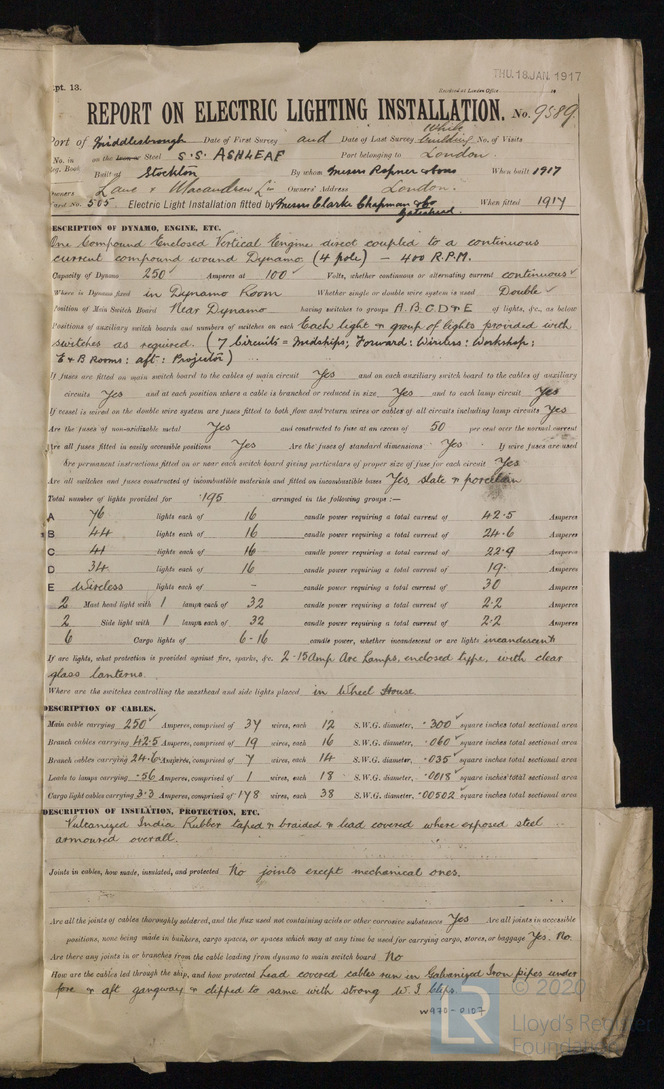 THU. 18 JAN. 1917
pt. 13.
Received at London Office
REPORT ON ELECTRIC LIGHTING INSTALLATION. No. 9589
Port of Middlesbrough Date of First Survey and Date of Last Survey While building No. of Visits
No. in Reg. Book on the Iron or Steel S.S. ASHLEAF Port belonging to London.
Built at Stockton By whom Messrs Ropner & Sons When built 1917
Owners Lane & Macandrew Ld Owners' Address London.
Yard No. 505 Electric Light Installation fitted by Messrs Clarke Chapman & Co Gateshead. When fitted 1917
DESCRIPTION OF DYNAMO, ENGINE, ETC.
One Compound Enclosed Vertical Engine direct coupled to a continuous
current compound wound Dynamo (4 pole) – 400 R.P.M.
Capacity of Dynamo 250 Amperes at 100 Volts, whether continuous or alternating current continuous
Where is Dynamo fixed in Dynamo Room Whether single or double wire system is used Double
Position of Main Switch Board Near Dynamo having switches to groups A.B.C.D & E of lights, &c., as below
Positions of auxiliary switch boards and numbers of switches on each Each light or group of lights provided with
switches as required. (7 Circuits = Midships; Forward: Wireless: Workshop:
E & B Rooms: aft: Projector)
If fuses are fitted on main switch board to the cables of main circuit Yes and on each auxiliary switch board to the cables of auxiliary
circuits Yes and at each position where a cable is branched or reduced in size Yes and to each lamp circuit Yes
If vessel is wired on the double wire system are fuses fitted to both flow and return wires or cables of all circuits including lamp circuits Yes
Are the fuses of non-oxidizable metal Yes and constructed to fuse at an excess of 50 per cent over the normal current
Are all fuses fitted in easily accessible positions Yes Are the fuses of standard dimensions Yes If wire fuses are used
are permanent instructions fitted on or near each switch board giving particulars of proper size of fuse for each circuit Yes
Are all switches and fuses constructed of incombustible materials and fitted on incombustible bases Yes, slate & porcelain
Total number of lights provided for 195 arranged in the following groups :—
A 76 lights each of 16 candle power requiring a total current of 42.5 Amperes
B 44 lights each of 16 candle power requiring a total current of 24.6 Amperes
C 41 lights each of 16 candle power requiring a total current of 22.9 Amperes
D 34 lights each of 16 candle power requiring a total current of 19. Amperes
E Wireless lights each of - candle power requiring a total current of 30 Amperes
2 Mast head light with 1 lamps each of 32 candle power requiring a total current of 2.2 Amperes
2 Side light with 1 lamps each of 32 candle power requiring a total current of 2.2 Amperes
6 Cargo lights of 6-16 candle power, whether incandescent or arc lights incandescent
If arc lights, what protection is provided against fire, sparks, &c. 2-15 Amp Arc Lamps, enclosed type, with clear
glass lanterns.
Where are the switches controlling the masthead and side lights placed in Wheel House
DESCRIPTION OF CABLES.
Main cable carrying 250 Amperes, comprised of 37 wires, each 12 S.W.G. diameter, .300 square inches total sectional area
Branch cables carrying 42.5 Amperes, comprised of 19 wires, each 16 S.W.G. diameter, .060 square inches total sectional area
Branch cables carrying 24.6 Amperes, comprised of 7 wires, each 14 S.W.G. diameter, .035 square inches total sectional area
Leads to lamps carrying .56 Amperes, comprised of 1 wires, each 18 S.W.G. diameter, .0018 square inches total sectional area
Cargo light cables carrying 3.3 Amperes, comprised of 178 wires, each 38 S.W.G. diameter, .00502 square inches total sectional area
DESCRIPTION OF INSULATION, PROTECTION, ETC.
Vulcanized India Rubber taped & braided & lead covered where exposed steel
armoured overall.
Joints in cables, how made, insulated, and protected No joints except mechanical ones.
Are all the joints of cables thoroughly soldered, and the flux used not containing acids or other corrosive substances Yes Are all joints in accessible
positions, none being made in bunkers, cargo spaces, or spaces which may at any time be used for carrying cargo, stores, or baggage Yes. No.
Are there any joints in or branches from the cable leading from dynamo to main switch board No
How are the cables led through the ship, and how protected Lead covered cables run in Galvanized Iron pipes under
fore & aft gangway & clipped to same with strong W.I. Clips.
W970-0107
LR
© 2020
Lloyd's Register
Foundation